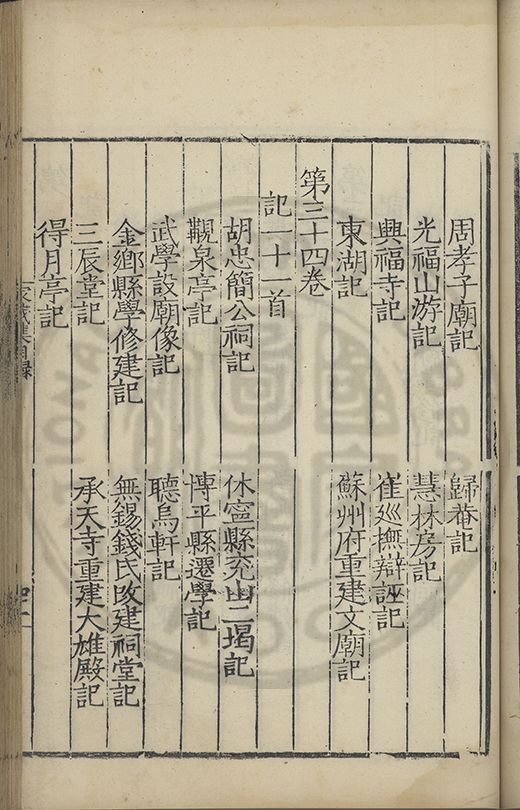 周孝子廟記 歸菴記
光福山游記 慧林房記
興福寺記 崔廵撫辯誣記
東湖記 蘇州府重建文廟記
第三十四卷
記一十一首
胡忠簡公祠記 休寧縣兖山二堨記
觀泉亭記 博平縣遷學記
武學設廟像記 聽烏軒記
金鄉縣學修建記 無錫錢氏改建祠堂記
三辰堂記 承天寺重建大雄殿記
得月亭記
家藏集目錄